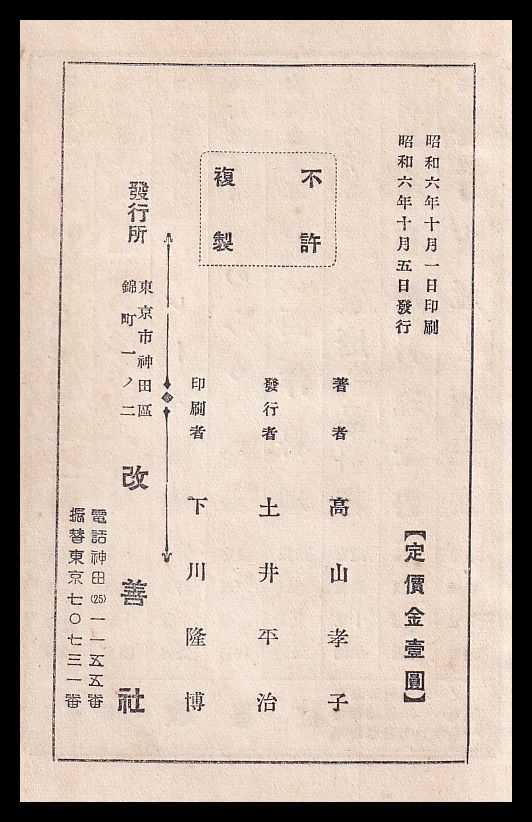 昭和六年十月一日印刷
昭和六年十月五日發行
【定價金壹圓】
不許
複製
著者 高山孝子
發行者 土井平治
印刷者 下川隆博
發行所
東京市神田區
錦町一ノ二
改善社
電話神田(25)一一五五番
振替東京七〇七三一番